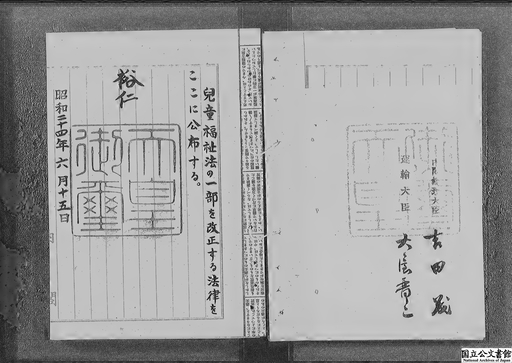 兒童福祉法の一部を改正する法律を
ここに公布する。
裕仁
昭和二十四年六月十五日
天皇御璽
内閣総理大臣
吉田茂
運輸大臣
大屋晋三
国立公文書館
National Archives of Japan